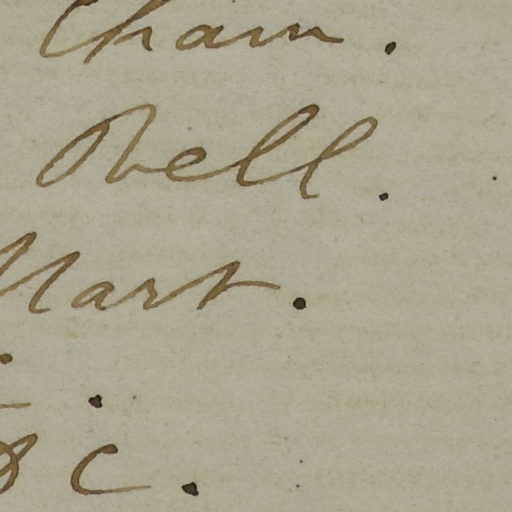 Cham.
Bell.
Mart.
&c.